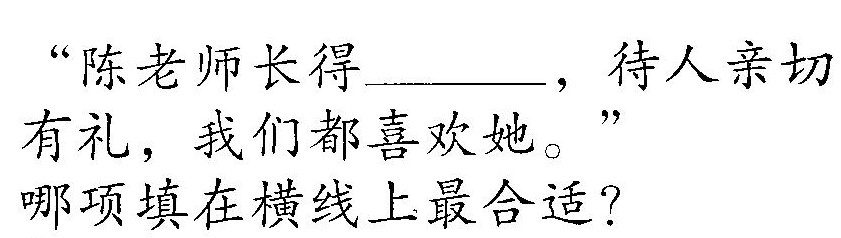 “陈老师长得________，待人亲切
有礼，我们都喜欢她。”
哪项填在横线上最合适？